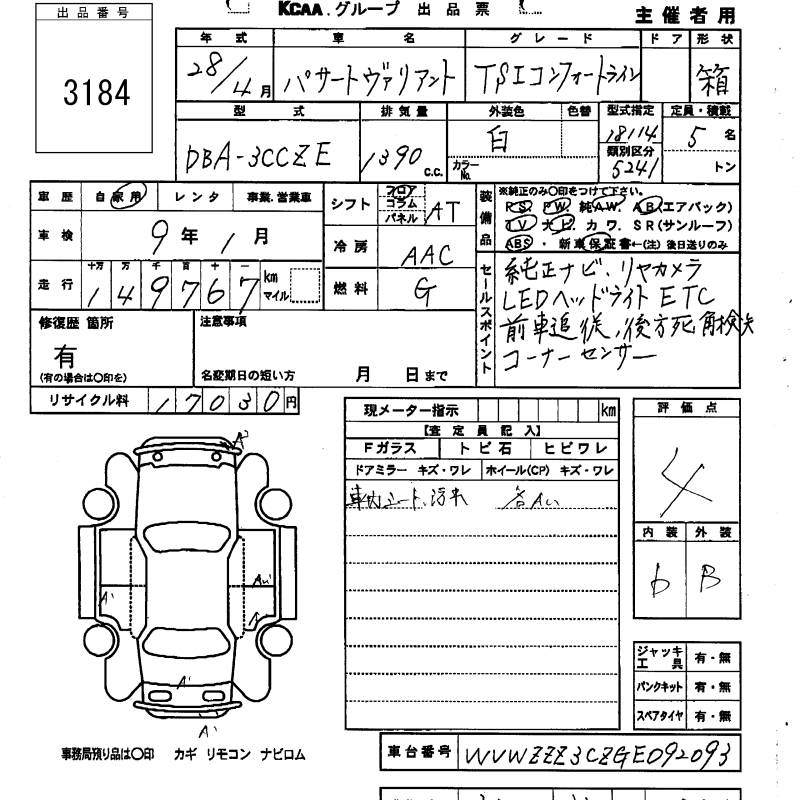 KCAA.グループ 出品票
主催者用
出品番号
3184
年式 車名 グレード ドア 形状
28/4月 パサートヴァリアント TSIコンフォートライン 箱
型式 排気量 外装色 色替 型式指定 定員・積載
DBA-3CCZE 1390 c.c. 白 18114 5名
カラーNo. 類別区分 5241 トン
車歴 自家用 レンタ 事業、営業車
シフト フロア コラム パネル AT
車検 9年1月
冷房 AAC
走行 十万 万 千 百 十 一
149767 km マイル
燃料 G
装備品
※純正のみ○印をつけて下さい。
P.S. P.W. 純A.W. A.B(エアバック)
T.V ナビ カワ. S R(サンルーフ)
ABS ・ 新車保証書←(注) 後日送りのみ
セールスポイント
純正ナビ、リヤカメラ
LEDヘッドライト ETC
前車追従、後方死角検知
コーナーセンサー
修復歴 箇所
有
(有の場合は○印を)
注意事項
名変期日の短い方 月 日まで
リサイクル料 17030円
現メーター指示 km
【査定員記入】
Fガラス トビ石 ヒビワレ
ドアミラー キズ・ワレ ホイール(CP) キズ・ワレ
車内シート、汚れ 各AU
評価点
4
内装 外装
b B
A'
AU'
A'
A'
A'
A'
ジャッキ工具 有・無
パンクキット 有・無
スペアタイヤ 有・無
事務局預り品は○印 カギ リモコン ナビロム
車台番号 WVWZZZ3CZGE092093